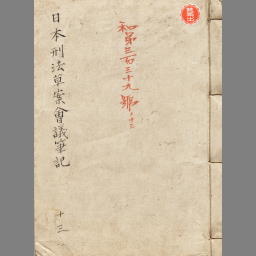 和第三百三十九號ノ十三
日本刑法草案會議筆記
十三